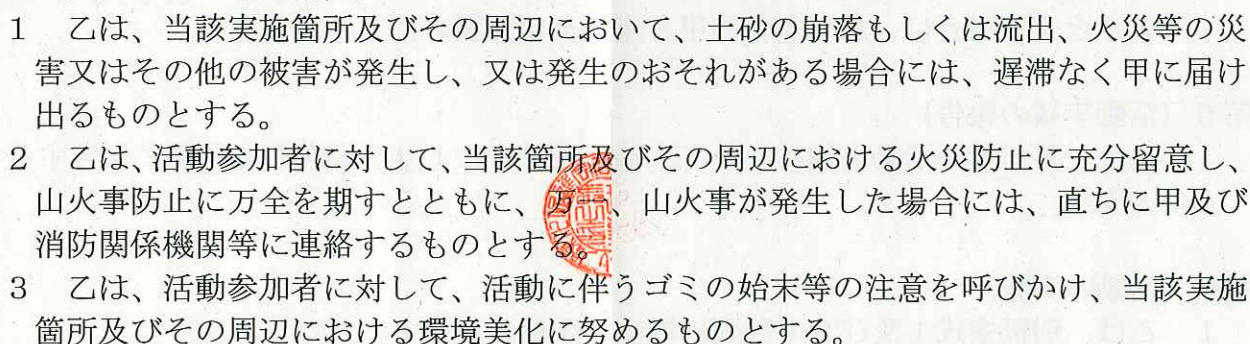 1 乙は、当該実施箇所及びその周辺において、土砂の崩落もしくは流出、火災等の災
害又はその他の被害が発生し、又は発生のおそれがある場合には、遅滞なく甲に届け
出るものとする。
2 乙は、活動参加者に対して、当該箇所及びその周辺における火災防止に充分留意し、
山火事防止に万全を期すとともに、万一、山火事が発生した場合には、直ちに甲及び
消防関係機関等に連絡するものとする。
3 乙は、活動参加者に対して、活動に伴うゴミの始末等の注意を呼びかけ、当該実施
箇所及びその周辺における環境美化に努めるものとする。